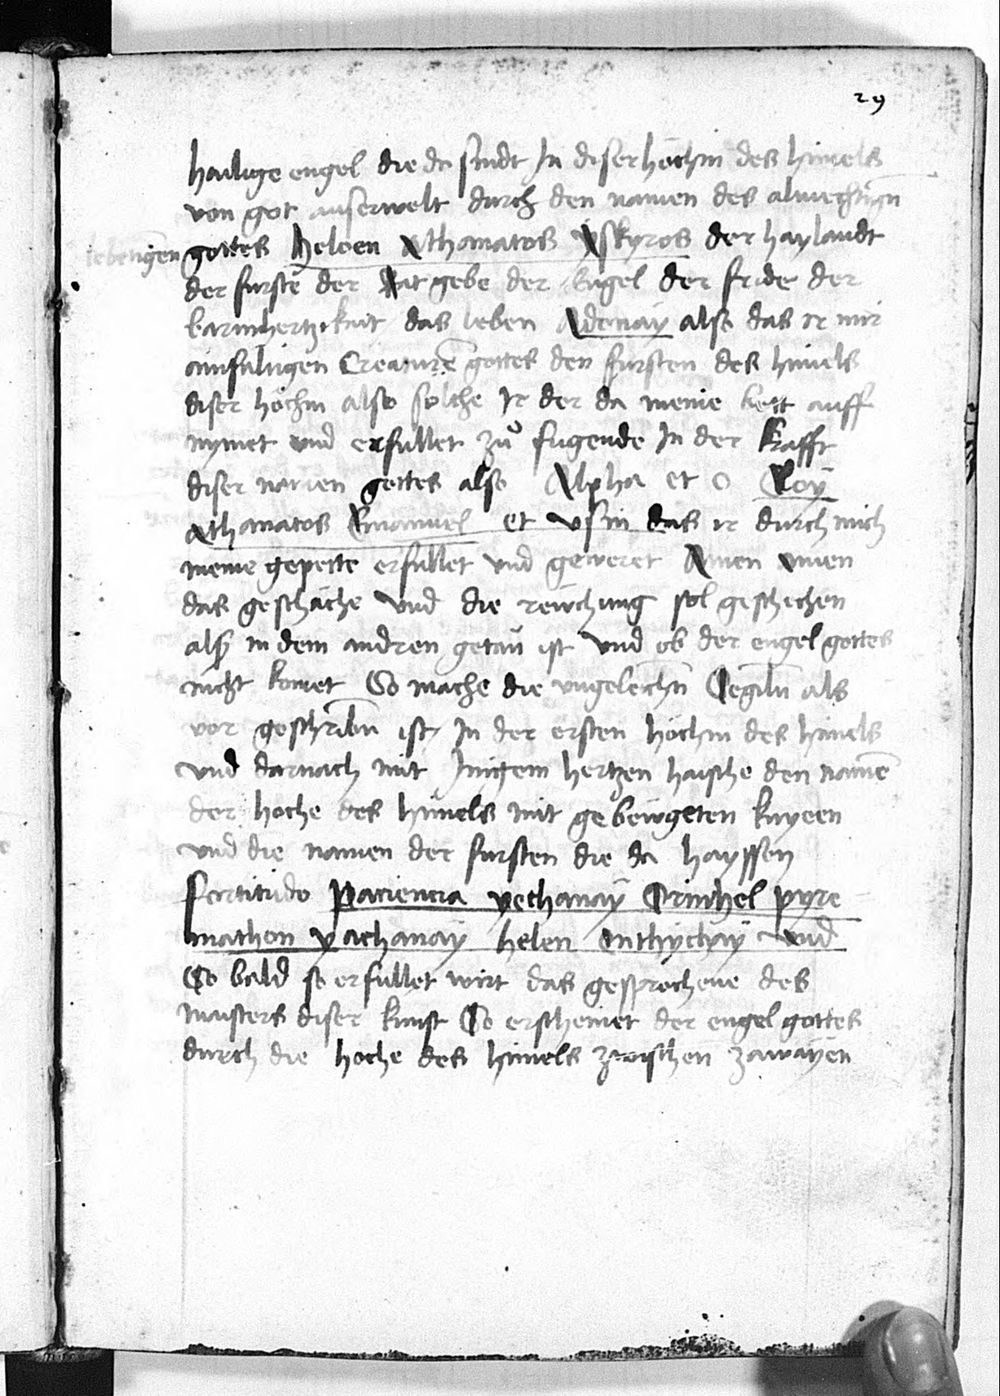 29
hailige engel die da sindt In diser höchin des himels
von got auserwelt durch den namen des almechtigen
lebetigen gottes Heleen Athanatos Yskyros der haylandt
der furste der Rat gebe der Engel der fride der
barmhertzikait das leben Adonay also das ir mir
ainfaltigen Creaturē gottes den fursten des himels
diser höchin also solche Ir der da meine bett auff
nymet vnd erfullet zů fugende In der krafft
diser namen gottes also Alpha et o Eloÿ
Athanatos Emanuel et vsin das ir durch mich
meine gepette erfullet vnd geweret Amen amen
das geschäche vnd die reüchung sol geschechen
als in dem andren getan ist vnd ob der engel gottes
nicht komet So mache die vngeleichn Segilln als
vor geschribn ist In der ersten höchin des himels
vnd darnach mit Innigem hertzen haische den namē
der höche des himels mit gebeügeten knyeen
vnd die namen der fursten die da hayssen
fortitudo Paciencia yechanaÿ Orinhel pyre
mathon yachanaÿ helen Onthychaÿ vnd
So bald so erfullet wirt das gesprochene des
maisters diser kunst So erscheinet der engel gottes
durch die höche des himels zwischen zwaÿen